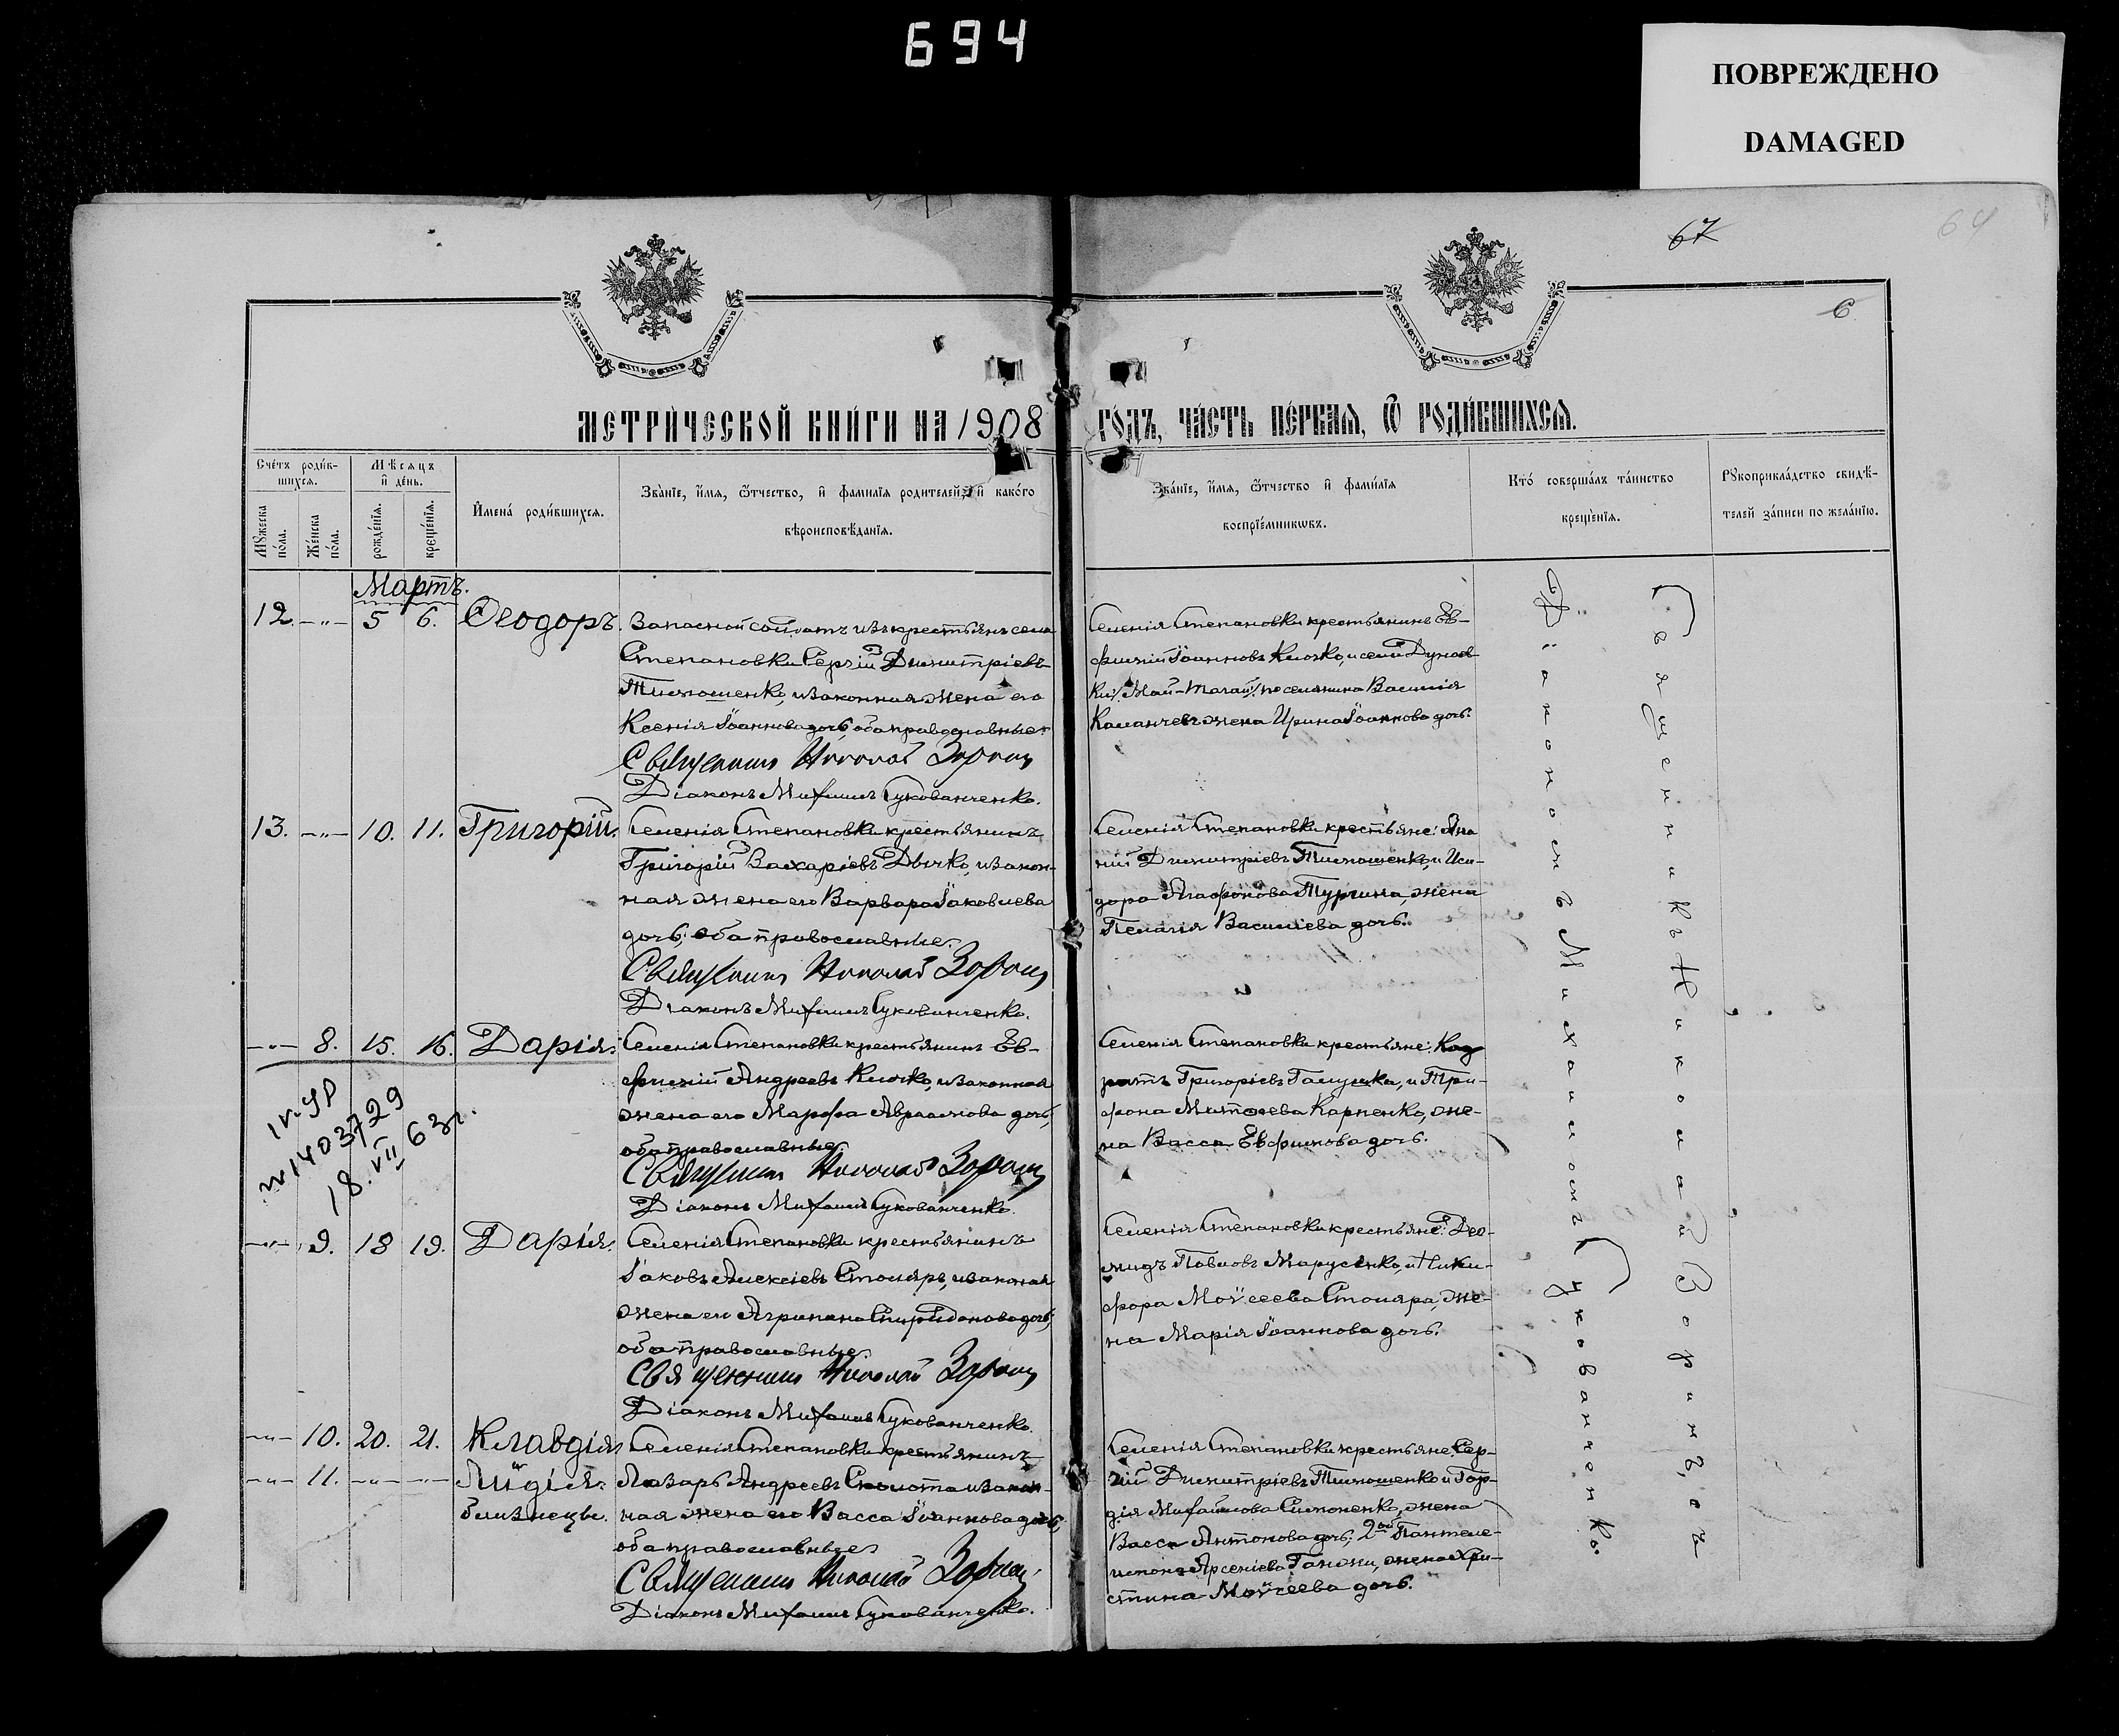 694
ПОВРЕЖДЕНО
DAMAGED
67
64
6
МЕТРИ́ЧЕСКОЙ КНИ́ГИ НА 1908 ГО́ДЪ, ЧА́СТЬ ПЕ́РВАЯ, Ѿ РОДИ́ВШИХСЯ.
Сче́тъ роди́в-
шихся.
Мѣсяцъ
и҆ де́нь.
Мꙋ́жеска
по́ла.
Же́нска
по́ла.
рожде́нїя.
креще́нїя.
И҆мена̀ роди́вшихся.
Зва́нїе, и҆́мя, ѻ҆́тчество, и҆ фами́лїя роди́телей, и҆ како́го
вѣроисповѣ́данїя.
Зва́нїе, и҆́мя, ѻ҆́тчество и҆ фами́лїя
воспрїе́мникωвъ.
Кто̀ соверша́лъ та́инство
креще́нїя.
Рꙋкоприкла́дство свидѣ́-
телей за́писи по жела́нїю.
Мартъ.
12. -"- 5 6. Ѳеодоръ.
Запасной солдатъ изъ крестьянъ села
Степановки Сергій Димитріевъ
Тимошенко, и законная жена его
Ксенія Іоаннова дочь, оба православные.
Священникъ Николай Зоринъ
Діаконъ Михаилъ Сукованченко.
Селенія Степановки крестьянинъ Ев-
фимій Іоанновъ Клочко, и села Дунаев
ки /Май-Тагай/ поселянина Василія
жена Ирина Іоаннова дочь.
13. -"- 10. 11. Григорій.
Селенія Степановки крестьянинъ
Григорій Захаріевъ Дычко, и закон-
ная жена его Варвара Іаковлева
дочь, оба православные.
Священникъ Николай Зоринъ
Діаконъ Михаилъ Сукованченко.
Селенія Степановки крестьяне: Ана
ній Димитріевъ Тимошенко, и Иси-
дора Агафонова Тургина, жена
Пелагія Василіева дочь.
-"- 8. 15. 16. Дарія.
Селенія Степановки крестьянинъ Ев-
фимій Андреевъ Клочко, и законная
жена его Марфа Авраамова дочь,
оба православные.
Священникъ Николай Зоринъ
Діаконъ Михаилъ Сукованченко.
Селенія Степановки крестьяне: Код
ратъ Григоріевъ Галушка, и Три-
фона Карпенко, же-
на Васса Евфимова дочь.
№ 1403729
18.VII 63г.
-"- 9. 18 19. Дарія.
Селенія Степановки крестьянинъ
Іаковъ Алексіевъ Столяръ, и законная
жена его Агрипина Спиридонова дочь,
оба православные.
Священникъ Николай Зоринъ
Діаконъ Михаилъ Сукованченко.
Селенія Степановки крестьяне: Дио-
мидъ Павловъ Марусенко, и Ники-
фора Моѵсеева Столяра, же-
на Марія Іоаннова дочь.
-"- 10. 20. 21. Клавдія
-"- 11. -"- -"- Лидія.
близнецы.
Селенія Степановки крестьянинъ
Лазарь Андреевъ Сколота и закон-
ная жена его Васса Іоаннова дочь,
оба православные
Священникъ Николай Зоринъ
Діаконъ Михаилъ Сукованченко.
Селенія Степановки крестьяне: Сер-
гій Димитріевъ Тимошенко и Гор-
дія Михайлова Симоненко, жена
Васса Антонова дочь; 2ой Пантеле-
имона Арсеніева жена Хри-
стина Моѵсеева дочь.
Священникъ Николай Зоринъ, съ
Діакономъ Михаиломъ Сукованченко.